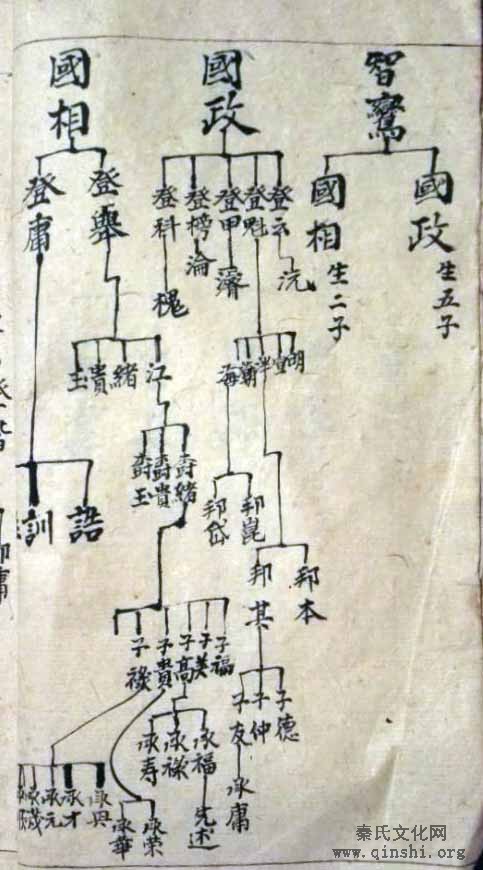 智鸞
國政 生五子
國相 生二子
國政
登云
登魁
登甲
登榜
登科
沅
濟
淪
槐
明
堂
半
朝
海
邦崑
邦岱
邦本
邦其
子德
子仲
子友
承庸
國相
登舉
登庸
江
緒
貴
玉
緒
貴
玉
語
訓
子福
子美
子高
子貴
子祿
承福
承祿
承寿
先述
承榮
承華
承興
承才
承元
承成
秦氏文化网
www.qinshi.org